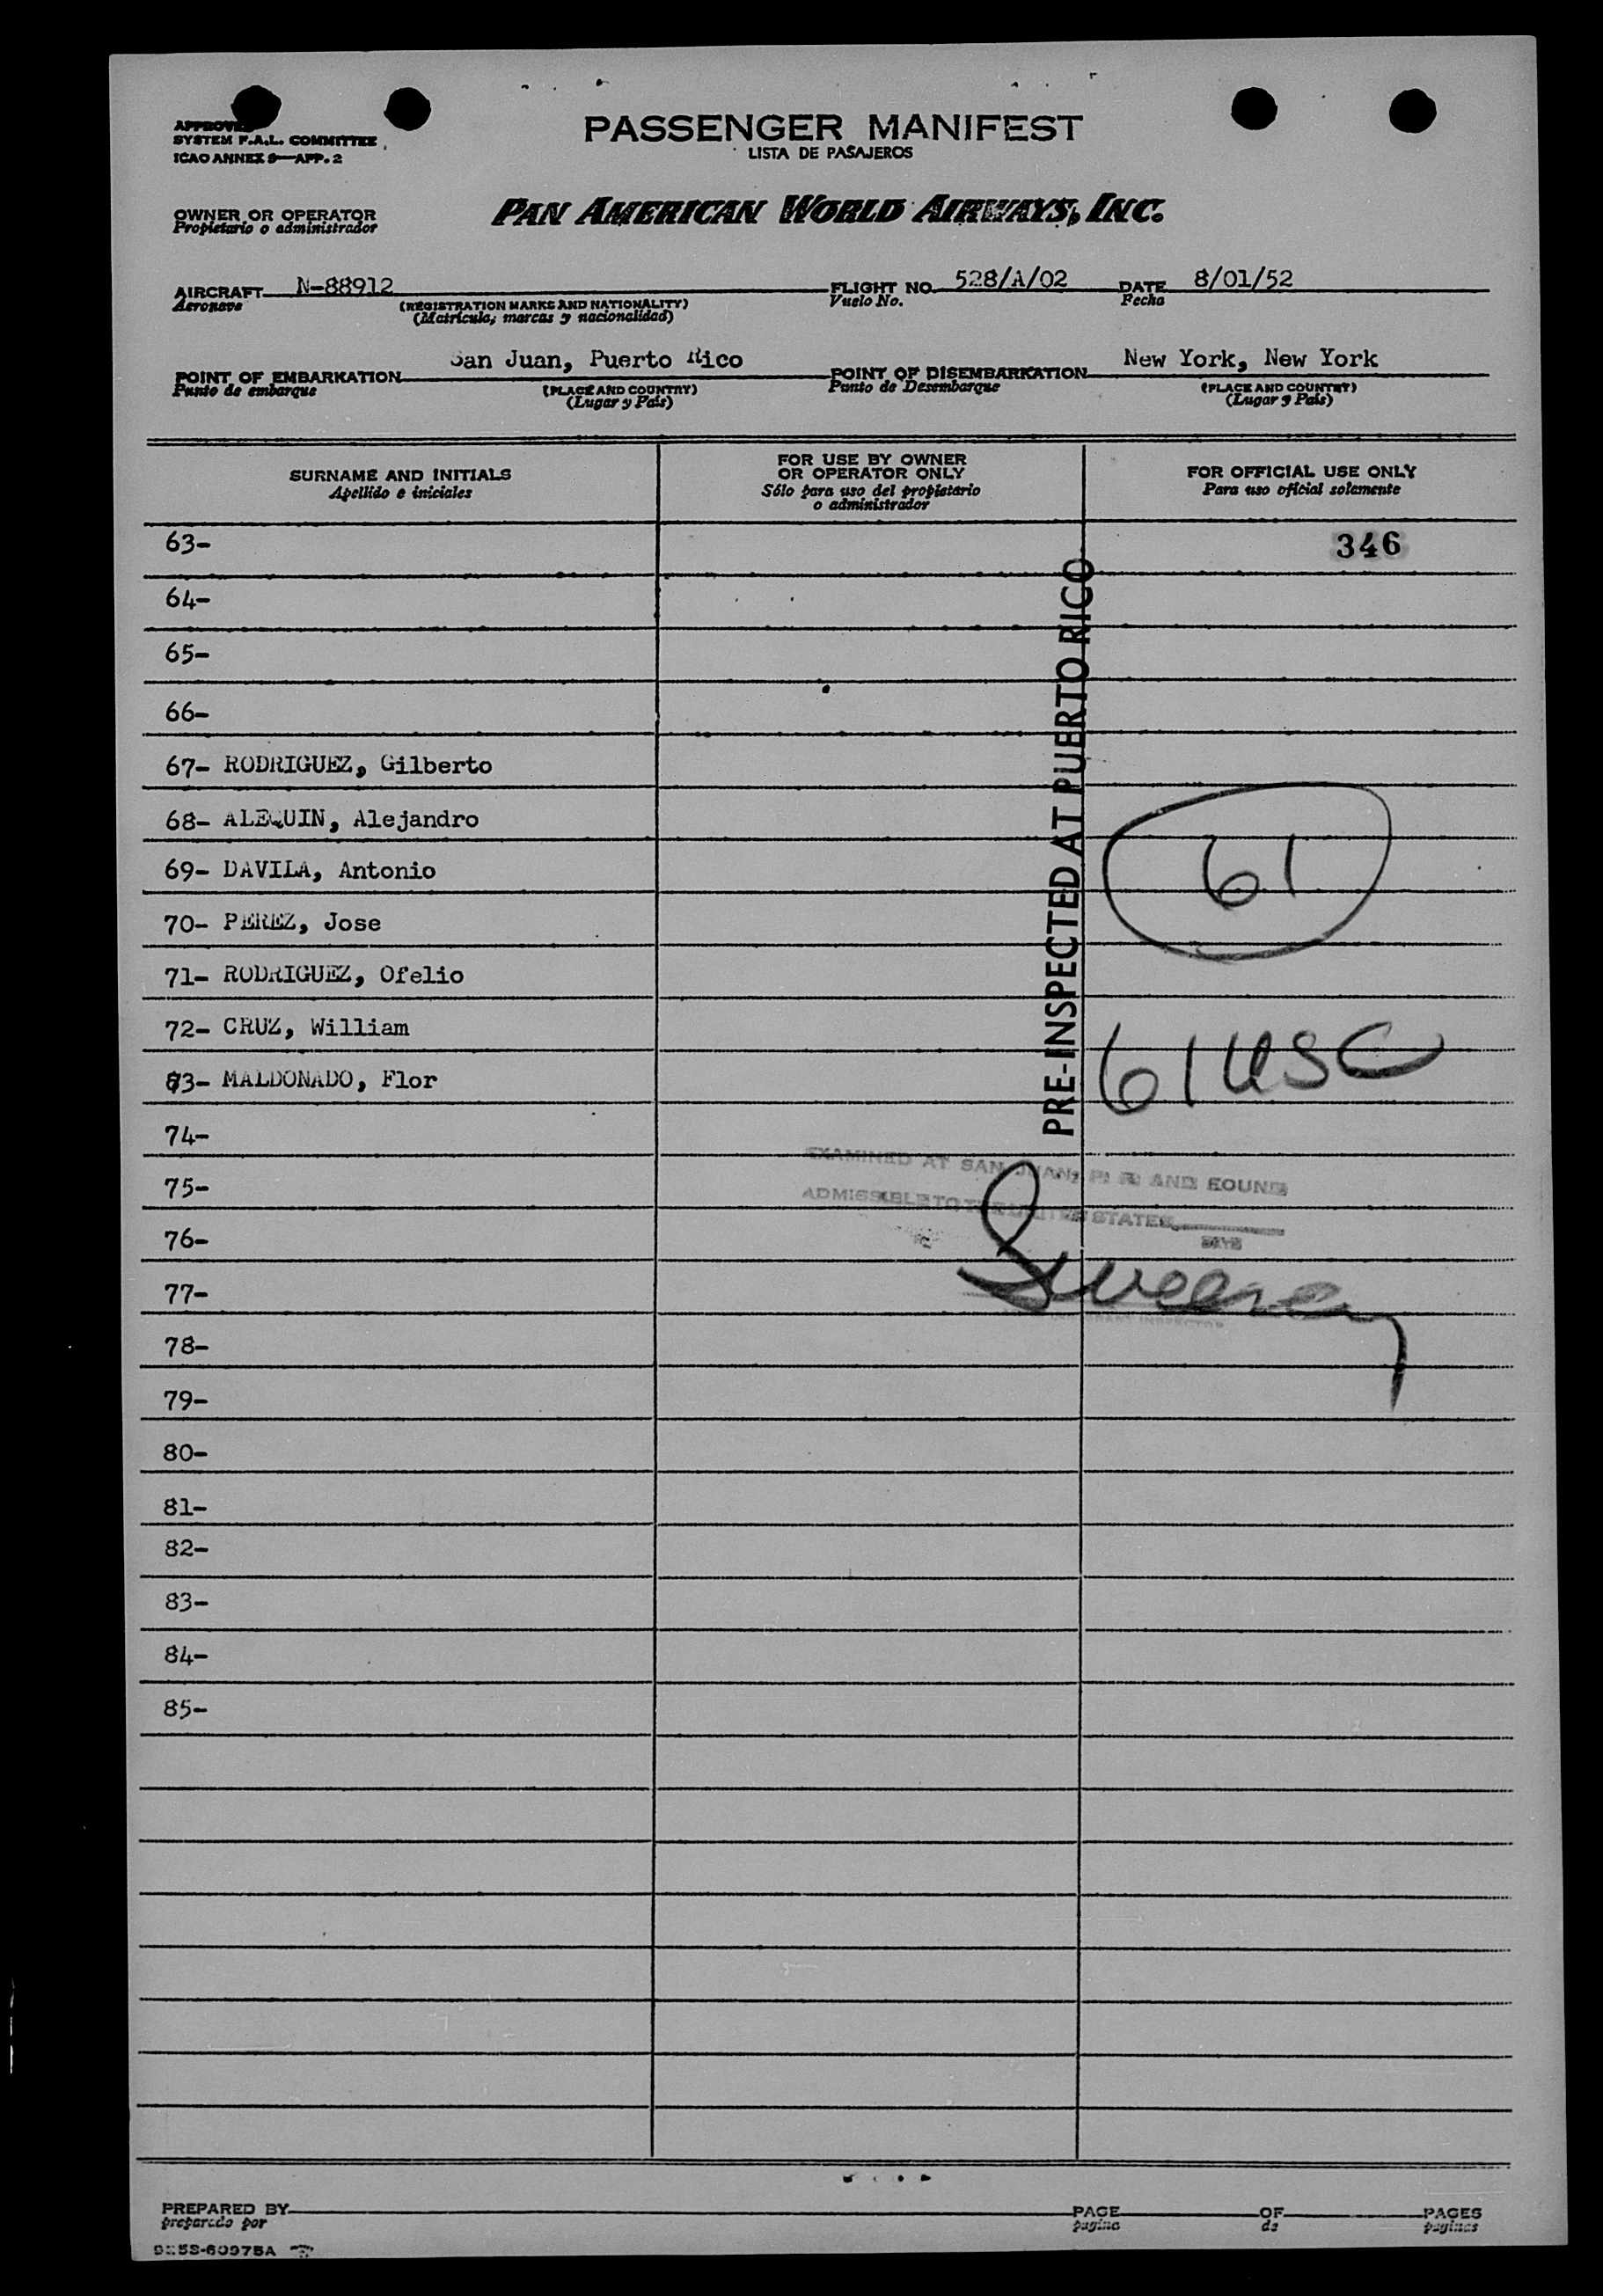 APPROVED
SYSTEM F.A.L. COMMITTEE
ICAO ANNEX 9—APP. 2
PASSENGER MANIFEST
LISTA DE PASAJEROS
OWNER OR OPERATOR
Propietario o administrador
PAN AMERICAN WORLD AIRWAYS, INC.
AIRCRAFT N-88912
Aeronave
(REGISTRATION MARKS AND NATIONALITY)
(Matricula, marcas y nacionalidad)
FLIGHT NO. 528/A/02 DATE 8/01/52
Vuelo No. Fecha
POINT OF EMBARKATION San Juan, Puerto Rico
Punto de embarque
(PLACE AND COUNTRY)
(Lugar y País)
POINT OF DISEMBARKATION New York, New York
Punto de Desembarque
(PLACE AND COUNTRY)
(Lugar y País)
SURNAME AND INITIALS
Apellido e iniciales
FOR USE BY OWNER
OR OPERATOR ONLY
Sólo para uso del propietario
o administrador
FOR OFFICIAL USE ONLY
Para uso oficial solamente
63-
346
64-
65-
66-
67- RODRIGUEZ, Gilberto
68- ALEQUIN, Alejandro
69- DAVILA, Antonio
70- PEREZ, Jose
71- RODRIGUEZ, Ofelio
72- CRUZ, William
73- MALDONADO, Flor
PRE-INSPECTED AT PUERTO RICO
61
61 USC
74-
75-
76-
77-
78-
79-
80-
81-
82-
83-
84-
85-
EXAMINED AT SAN JUAN, P. R. AND FOUND
ADMISSIBLE TO THE UNITED STATES
DAYS
Sweeney
IMMIGRANT INSPECTOR
PREPARED BY
preparado por
PAGE OF PAGES
pagina de paginas